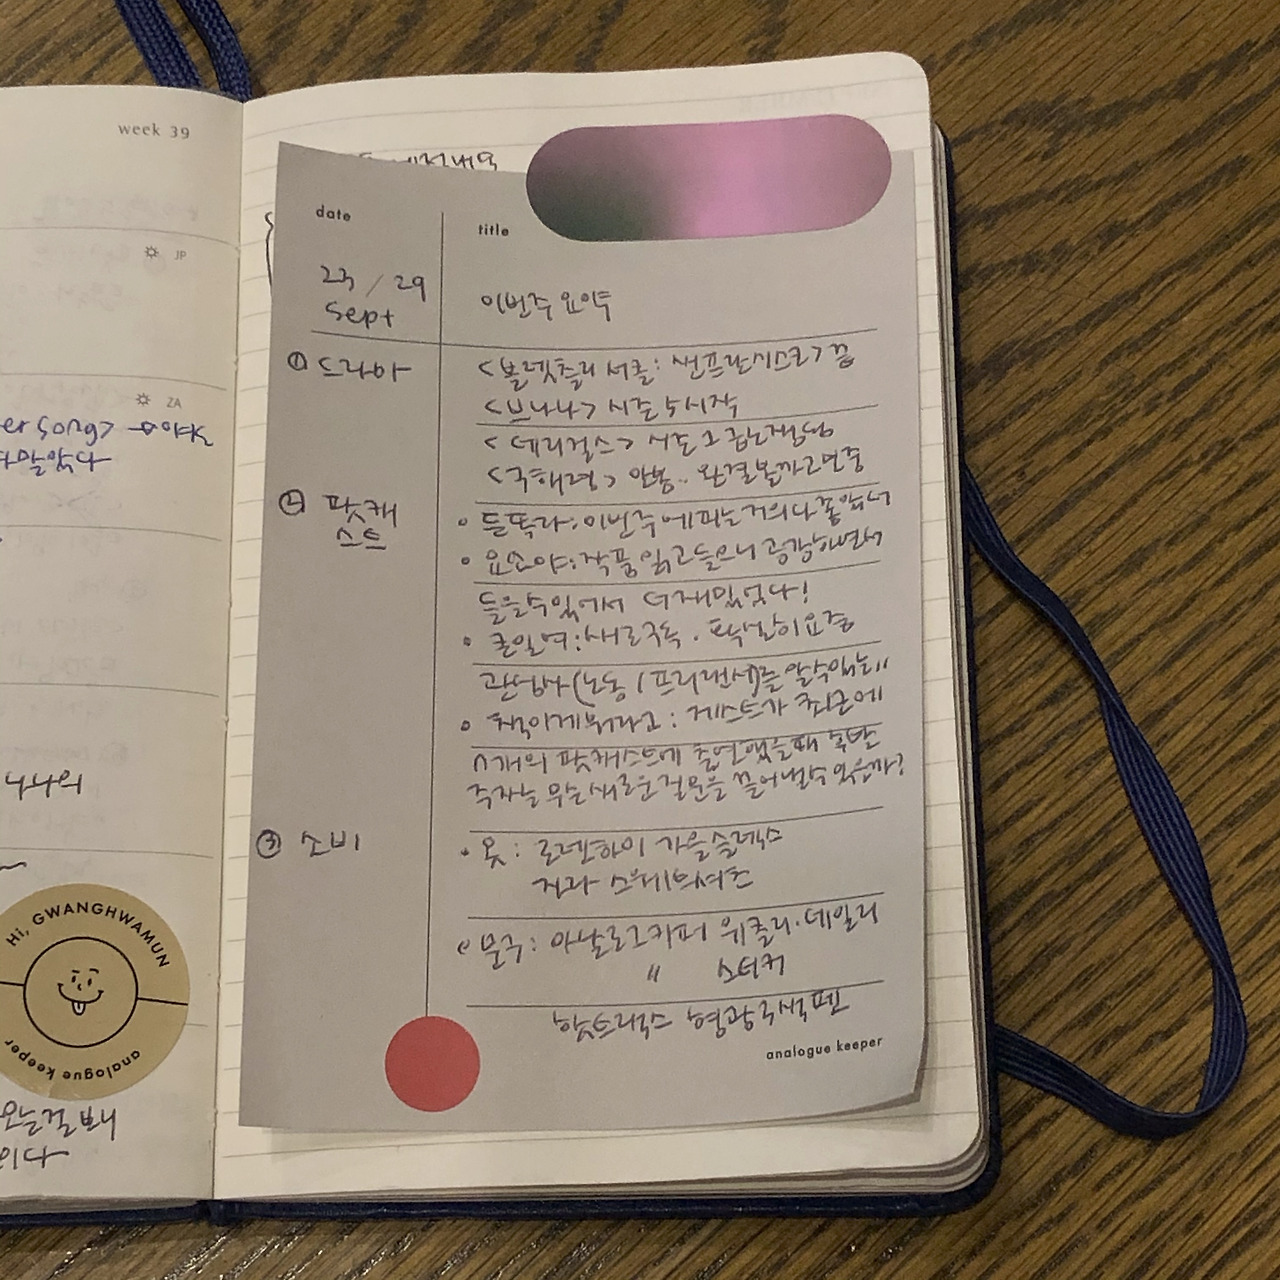 week 39
JP
ZA
er song> → 아직
말았다
나나의
Hi, GWANGHWAMUN
analogue keeper
오는걸 보니
이다
date
title
23 / 29
Sept
이번주 요약
① 드라마
<블렛츨리 서클: 샌프란시스코> 끝
<브나나> 시즌 5 시작
<데리걸스> 시즌 1 틈는재탕
<구해령> 안봄.. 완결볼까 고민중
② 팟캐
스트
• 듣똑라: 이번주 에피는 거의다 좋았어
• 요조야: 작품 읽고 들으니 공감하면서
들을수있어서 더 재밌었다!
• 큰일여: 새로구독. 팍넘이 요즘
관심사(노동/프리랜서)를 알수있는
• 책이게뭐라고: 게스트가 최근에
n개의 팟캐스트에 출연했을때 후발
주자는 무슨 새로운 질문을 끌어낼수 있을까?
③ 소비
• 옷: 로렌하이 가을슬랙스
자라 스웨트셔츠
• 문구: 아날로그키퍼 위클리·데일리
〃 스티커
핫트랙스 형광국색펜
analogue keeper